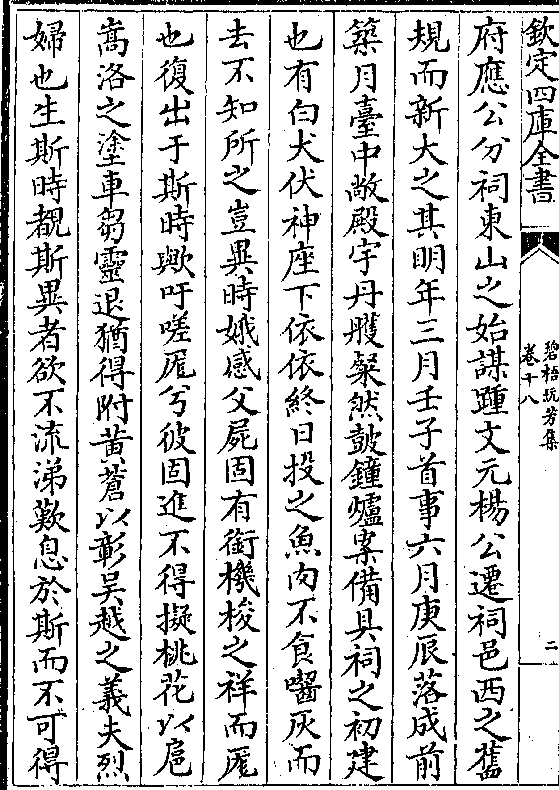 欽定四庫全書
碧梧玩芳集
卷十八
二
府應公分祠東山之始謀踵文元楊公遷祠邑西之舊
規而新大之其明年三月壬子首事六月庚辰落成前
築月臺中敞殿宇丹雘粲然鼓鐘爐案備具祠之初建
也有白犬伏神座下依依終日投之魚肉不食嚙灰而
去不知所之豈異時娥感父屍固有銜機梭之祥而厖
也復出于斯時歟吁嗟厖兮彼固進不得擬桃花以扈
嵩洛之塗車芻靈退猶得附黃蒼以彰吳越之義夫烈
婦也生斯時覩斯異者欲不流涕歎息於斯而不可得